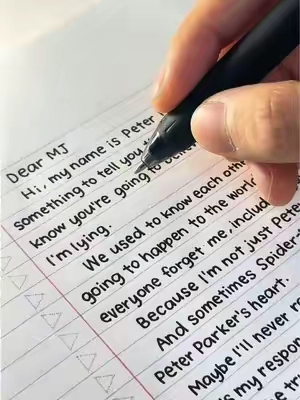 Dear MJ
Hi, my name is Peter
something to tell you
know you're going to
I'm lying.
We used to know each
going to happen to the
everyone forget me,
Because I'm not just
And sometimes
Peter Parker's heart.
Maybe I'll never
my